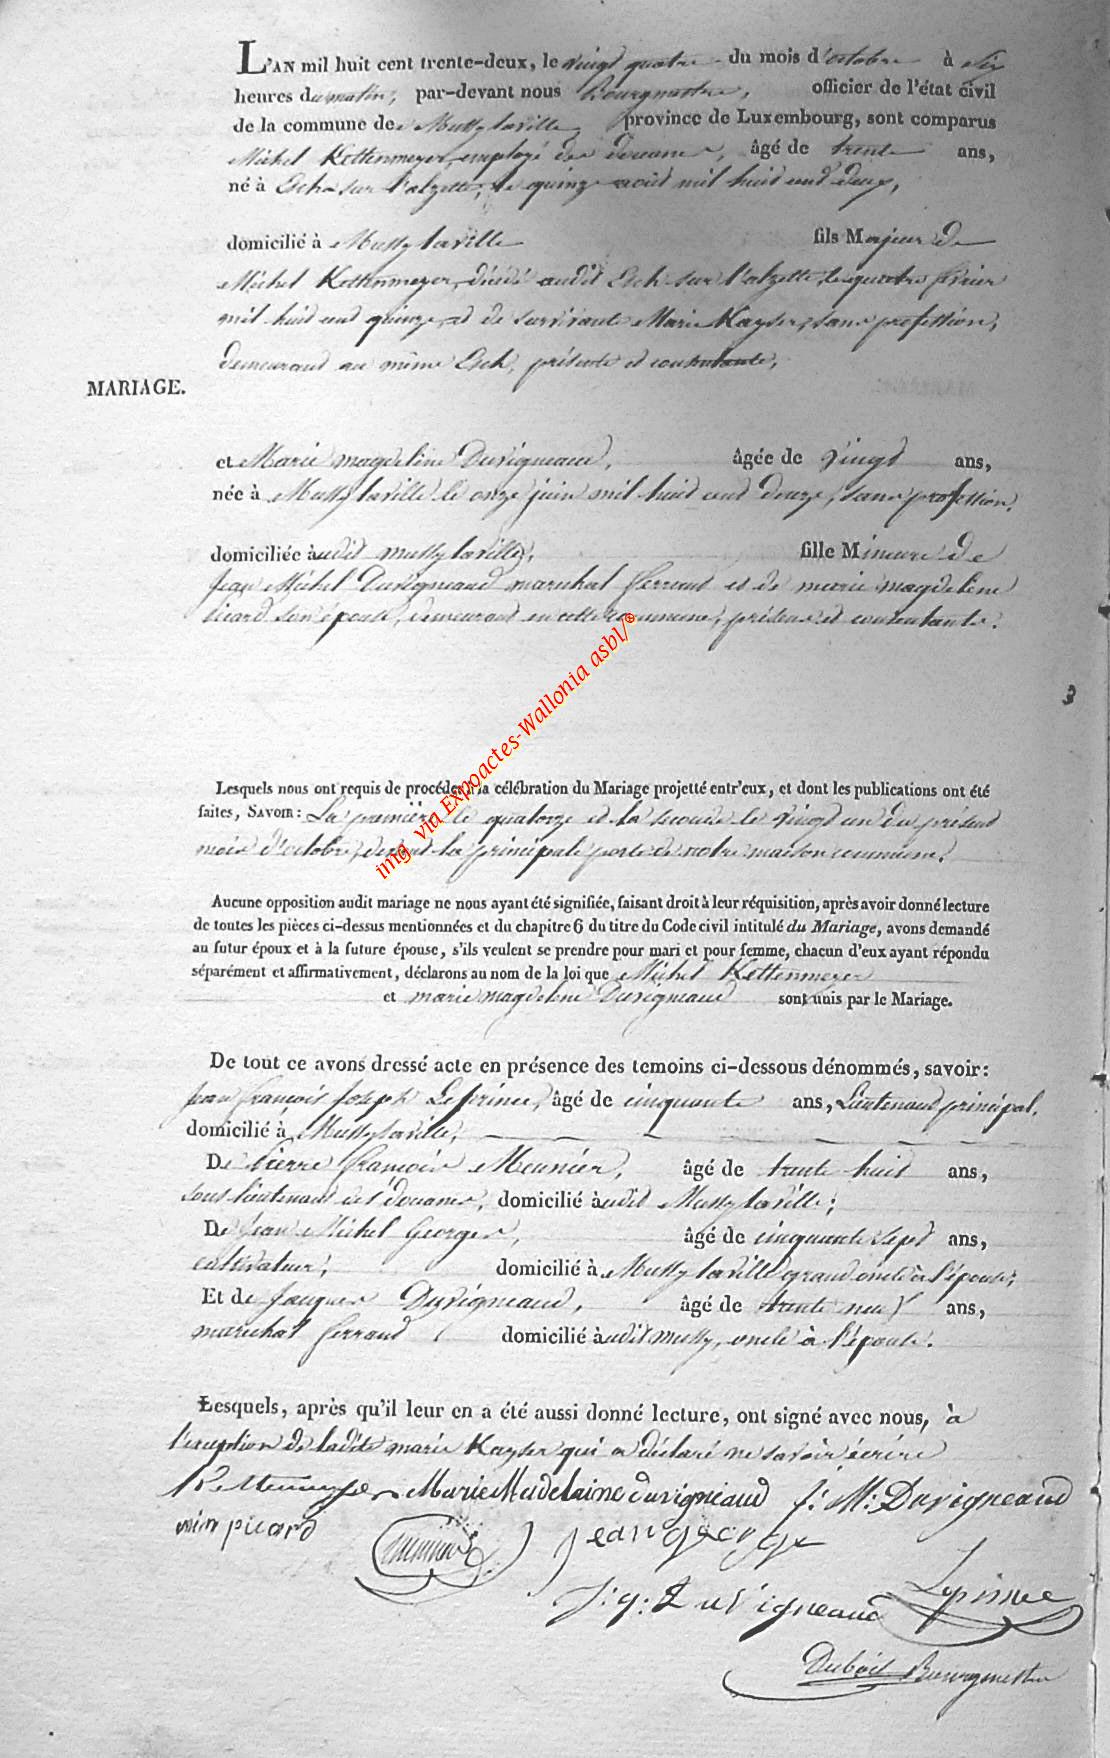 L'AN mil huit cent trente-deux, le vingt quatre du mois d'octobre à six
heures du matin, par-devant nous Bourgmestre, officier de l'état civil
de la commune de Mussy laville, province de Luxembourg, sont comparus
Michel Kettenmeyer, employé des douanes, âgé de trente ans,
né à Esch sur l'alzette, le quinze août mil huit cent deux,
domicilié à Mussy laville fils Majeur de
Michel Kettenmeyer, décédé audit Esch sur l'alzette, le quatre février
mil huit cent quinze, et de survivante Marie Kayser, sans profession,
demeurant au même Esch, présente et consentante,
MARIAGE.
et Marie magdeleine Duvigneaud, âgée de vingt ans,
née à Mussy laville le onze juin mil huit cent douze, sans profession,
domiciliée audit mussy laville, fille Mineure de
Jean Michel Duvigneaud marechal ferrant et de marie magdeleine
picard son épouse, demeurant en cette commune, présens et consentants.
3
Lesquels nous ont requis de procéder à la célébration du Mariage projetté entr'eux, et dont les publications ont été
faites, SAVOIR: La première le quatorze et la seconde le vingt un du présent
mois d'octobre, devant la principale porte de notre maison commune.
Aucune opposition audit mariage ne nous ayant été signifiée, faisant droit à leur réquisition, après avoir donné lecture
de toutes les pièces ci-dessus mentionnées et du chapitre 6 du titre du Code civil intitulé du Mariage, avons demandé
au futur époux et à la future épouse, s'ils veulent se prendre pour mari et pour femme, chacun d'eux ayant répondu
séparément et affirmativement, déclarons au nom de la loi que Michel Kettenmeyer
et marie magdeleine Duvigneaud sont unis par le Mariage.
De tout ce avons dressé acte en présence des temoins ci-dessous dénommés, savoir:
Jean françois Joseph Leprince, âgé de cinquante ans, Lieutenant principal,
domicilié à Mussy laville,
De Pierre françois Meunier, âgé de trente huit ans,
sous lieutenant des douanes, domicilié audit Mussy laville;
De Jean Michel Georges, âgé de cinquante sept ans,
cultivateur, domicilié à Mussy laville grand oncle à l'épouse;
Et de Jacques Duvigneaud, âgé de trente neuf ans,
marechal ferrand domicilié audit mussy, oncle à l'épouse.
Lesquels, après qu'il leur en a été aussi donné lecture, ont signé avec nous, à
l'exception de ladite marie Kayser qui a déclaré ne savoir écrire
Kettenmeyer Marie Madelaine duvigneaud J: M: Duvigneaud
picard meunier Jean george
J: q: Duvigneaud Leprince
Dubois Bourgmestre
img via Expoactes-Wallonia asbl/®